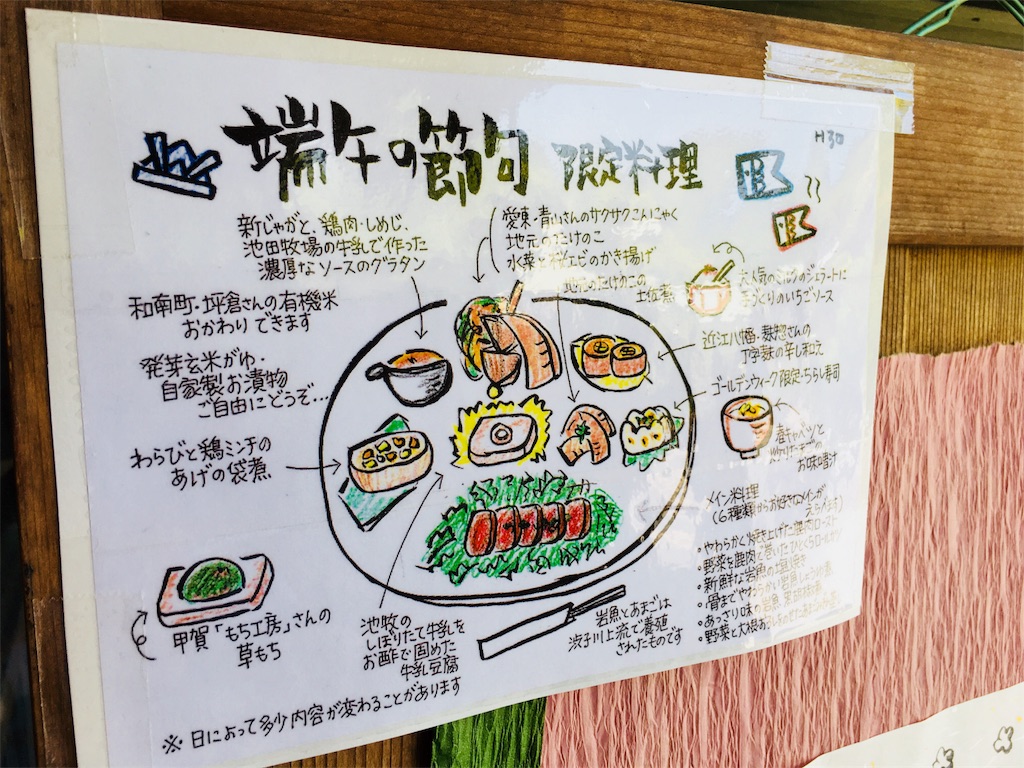 端午の節句 限定料理
H30
新じゃがと、鶏肉・しめじ、
池田牧場の牛乳で作った
濃厚なソースのグラタン
愛東・青山さんのサクサクこんにゃく
地元のたけのこ
水菜と桜エビのかき揚げ
地元のたけのこの
土佐煮
大人気のミルクのジェラートに
手づくりのいちごソース
和南町・坪倉さんの有機米
おかわりできます
発芽玄米がゆ・
自家製お漬物
ご自由にどうぞ…
近江八幡・麸惣さんの
丁字麸の辛し和え
ゴールデンウィーク限定・ちらし寿司
わらびと鶏ミンチの
あげの袋煮
春キャベツと
お味噌汁
メイン料理
(6種類からお好きなメインが
えらべます)
・やわらかく焼き上げた鹿肉ロースト
・野菜を鹿肉で巻いた
・新鮮な岩魚の塩焼き
・骨までやわらかい
・あっさり味の岩魚
・野菜と大根おろし
甲賀「もち工房」さんの
草もち
池牧の
しぼりたて牛乳を
お酢で固めた
牛乳豆腐
岩魚とあまごは
渋子川上流で養殖
されたものです
※日によって多少内容が変わることがあります